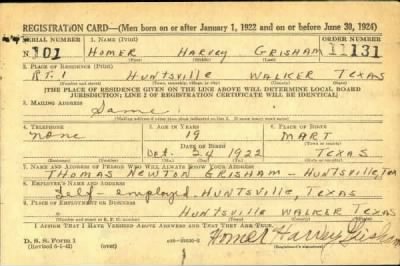 REGISTRATION CARD—(Men born on or after January 1, 1922 and on or before June 30, 1924)
SERIAL NUMBER 1. NAME (Print) ORDER NUMBER
N 101 HOMER HARVEY GRISHAM 11131
(First) (Middle) (Last)
2. PLACE OF RESIDENCE (Print)
RT. 1 HUNTSVILLE WALKER TEXAS
(Number and street) (Town, township, village, or city) (County) (State)
[THE PLACE OF RESIDENCE GIVEN ON THE LINE ABOVE WILL DETERMINE LOCAL BOARD
JURISDICTION; LINE 2 OF REGISTRATION CERTIFICATE WILL BE IDENTICAL]
3. MAILING ADDRESS
Same
4. TELEPHONE 5. AGE IN YEARS 6. PLACE OF BIRTH
none 19 MART
DATE OF BIRTH (Town or county)
Oct. 24 1922 TEXAS
7. NAME AND ADDRESS OF PERSON WHO WILL ALWAYS KNOW YOUR ADDRESS
THOMAS NEWTON GRISHAM - HUNTSVILLE, TEX
8. EMPLOYER'S NAME AND ADDRESS
Self-employed. HUNTSVILLE, TEXAS
9. PLACE OF EMPLOYMENT OR BUSINESS
HUNTSVILLE WALKER TEXAS
(Number and street or R. F. D. number) (Town) (County) (State)
I AFFIRM THAT I HAVE VERIFIED ABOVE ANSWERS AND THAT THEY ARE TRUE.
D. S. S. Form 1
(Revised 6-1-42) Homer Harvey Grisham